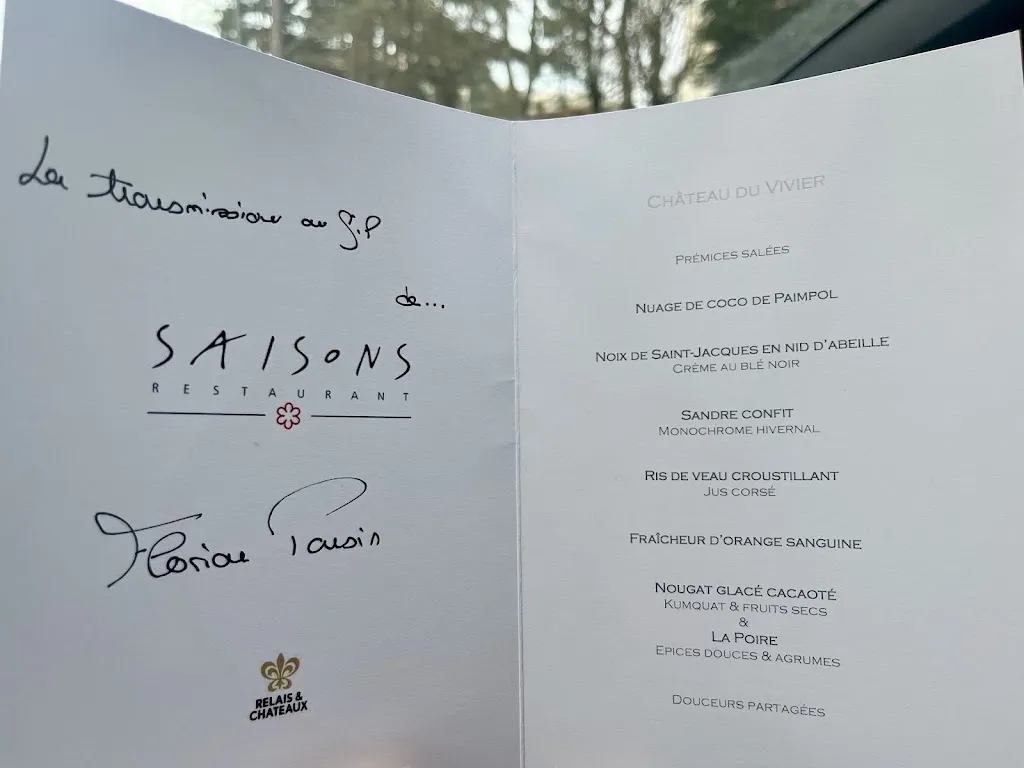 La transmission au G.P
de...
SAISONS
RESTAURANT
Florian Pansin
RELAIS &
CHATEAUX
CHÂTEAU DU VIVIER
PRÉMICES SALÉES
NUAGE DE COCO DE PAIMPOL
NOIX DE SAINT-JACQUES EN NID D'ABEILLE
CRÈME AU BLÉ NOIR
SANDRE CONFIT
MONOCHROME HIVERNAL
RIS DE VEAU CROUSTILLANT
JUS CORSÉ
FRAÎCHEUR D'ORANGE SANGUINE
NOUGAT GLACÉ CACAOTÉ
KUMQUAT & FRUITS SECS
&
LA POIRE
EPICES DOUCES & AGRUMES
DOUCEURS PARTAGÉES